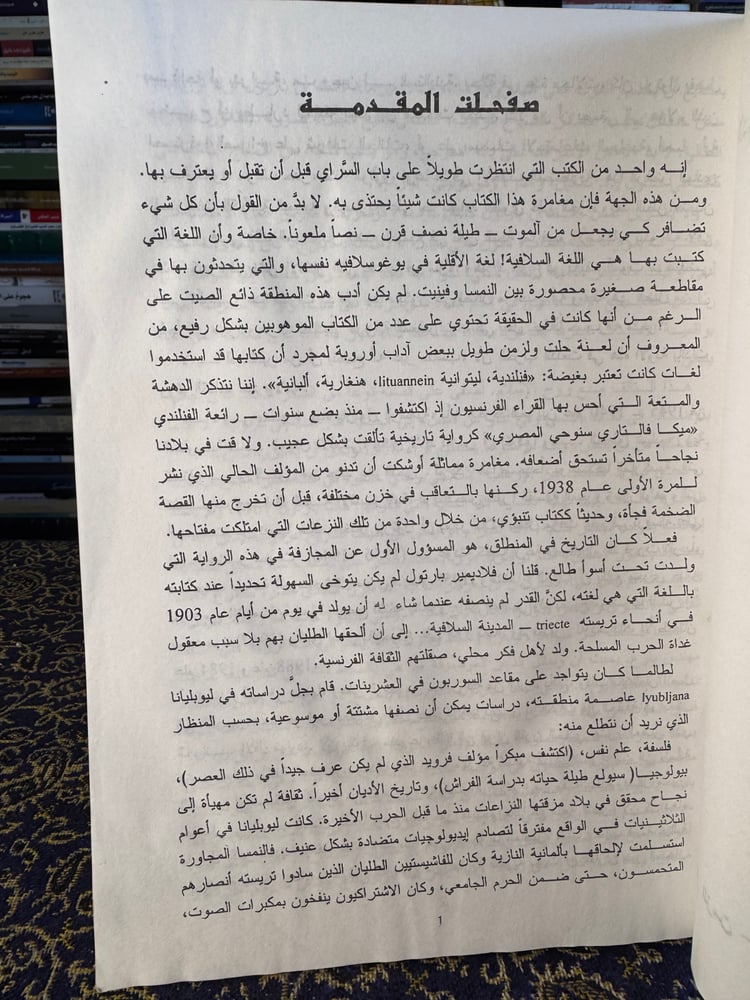 صفحات المقدمة
إنه واحد من الكتب التي انتظرت طويلاً على باب السَّراي قبل أن تقبل أو يعترف بها.
ومن هذه الجهة فإن مغامرة هذا الكتاب كانت شيئاً يحتذى به. لا بدَّ من القول بأن كل شيء
تضافر كي يجعل من آلموت – طيلة نصف قرن – نصاً ملعوناً. خاصة وأن اللغة التي
كتبت بها هي اللغة السلافية! لغة الأقلية في يوغوسلافيه نفسها، والتي يتحدثون بها في
مقاطعة صغيرة محصورة بين النمسا وفينيت. لم يكن أدب هذه المنطقة ذائع الصيت على
الرغم من أنها كانت في الحقيقة تحتوي على عدد من الكتاب الموهوبين بشكل رفيع، من
المعروف أن لعنة حلت ولزمن طويل ببعض آداب أوروبة لمجرد أن كتابها قد استخدموا
لغات كانت تعتبر بغيضة: «فنلندية، ليتوانية lituannein، هنغارية، ألبانية». إننا نتذكر الدهشة
والمتعة التي أحس بها القراء الفرنسيون إذ اكتشفوا – منذ بضع سنوات – رائعة الفنلندي
«ميكا فالتاري سنوحي المصري» كرواية تاريخية تألقت بشكل عجيب. ولا قت في بلادنا
نجاحاً متأخراً تستحق أضعافه. مغامرة مماثلة أوشكت أن تدنو من المؤلف الحالي الذي نشر
للمرة الأولى عام 1938، ركنها بالتعاقب في خزن مختلفة، قبل أن تخرج منها القصة
الضخمة فجأة، وحديثاً ككتاب تنبؤي، من خلال واحدة من تلك النزعات التي امتلكت مفتاحها.
فعلاً كان التاريخ في المنطلق، هو المسؤول الأول عن المجازفة في هذه الرواية التي
ولدت تحت أسوأ طالع. قلنا أن فلاديمير بارتول لم يكن يتوخى السهولة تحديداً عند كتابته
باللغة التي هي لغته، لكنَّ القدر لم ينصفه عندما شاء له أن يولد في يوم من أيام عام 1903
في أنحاء تريسته triecte – المدينة السلافية... إلى أن ألحقها الطليان بهم بلا سبب معقول
غداة الحرب المسلحة. ولد لأهل فكر محلي، صقلتهم الثقافة الفرنسية.
لطالما كان يتواجد على مقاعد السوربون في العشرينات. قام بجلَّ دراساته في ليوبليانا
lyubljana عاصمة منطقته، دراسات يمكن أن نصفها مشتتة أو موسوعية، بحسب المنظار
الذي نريد أن نتطلع منه:
فلسفة، علم نفس، (اكتشف مبكراً مؤلف فرويد الذي لم يكن عرف جيداً في ذلك العصر)،
بيولوجيا( سيولع طيلة حياته بدراسة الفراش)، وتاريخ الأديان أخيراً. ثقافة لم تكن مهيأة إلى
نجاح محقق في بلاد مزقتها النزاعات منذ ما قبل الحرب الأخيرة. كانت ليوبليانا في أعوام
الثلاثينيات في الواقع مفترقاً لتصادم إيديولوجيات متضادة بشكل عنيف. فالنمسا المجاورة
استسلمت لإلحاقها بألمانية النازية وكان للفاشيستيين الطليان الذين سادوا تريسته أنصارهم
المتحمسون، حتى ضمن الحرم الجامعي، وكان الاشتراكيون ينفخون بمكبرات الصوت،
1